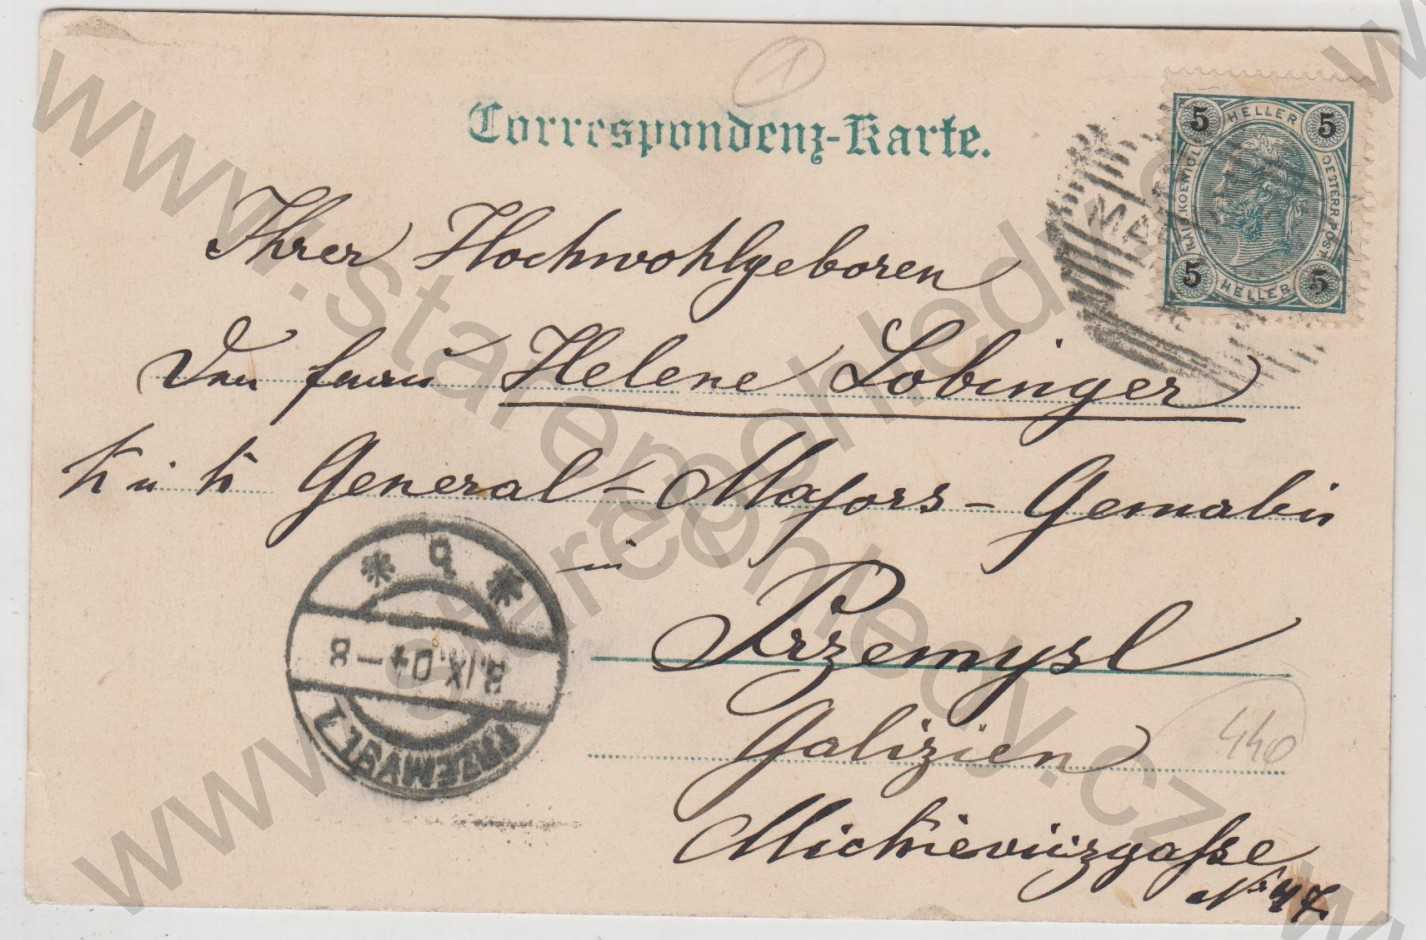 Correspondenz-Karte.
5 HELLER 5
KAIS. KOENIGL. OESTERR. POST
5 HELLER 5
MA
Ihrer Hochwohlgeboren
Frau Helene Lobinger
k. u. k. General-Majors-Gemalin
in
Przemysl
Galizien
Mickiewiizgasse
No 47
440
1
PRZEMYŚL 1
8.IX.04-8
www.starepohledy.cz
www.starepohledy.cz